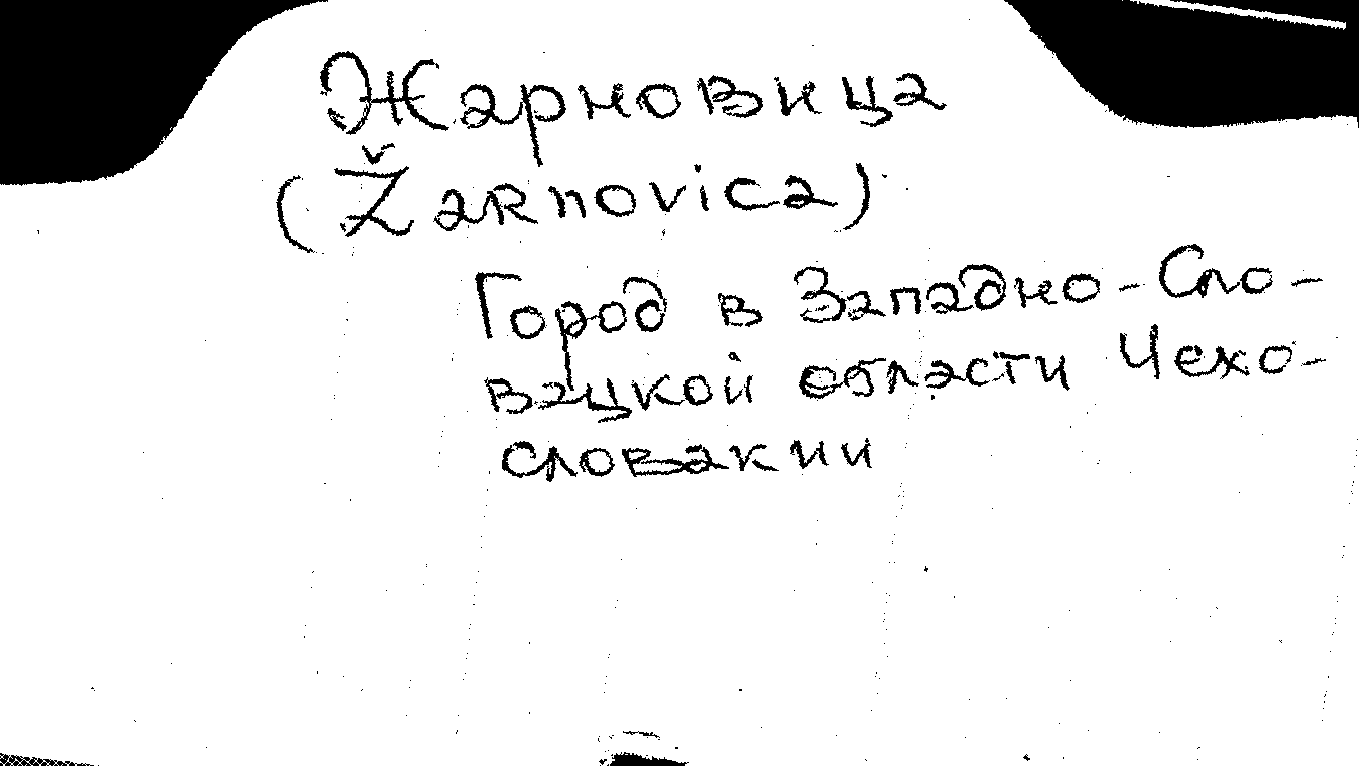 Жарновица
(Žarnovica)
Город в Западно-Сло-
вацкой области Чехо-
словакии